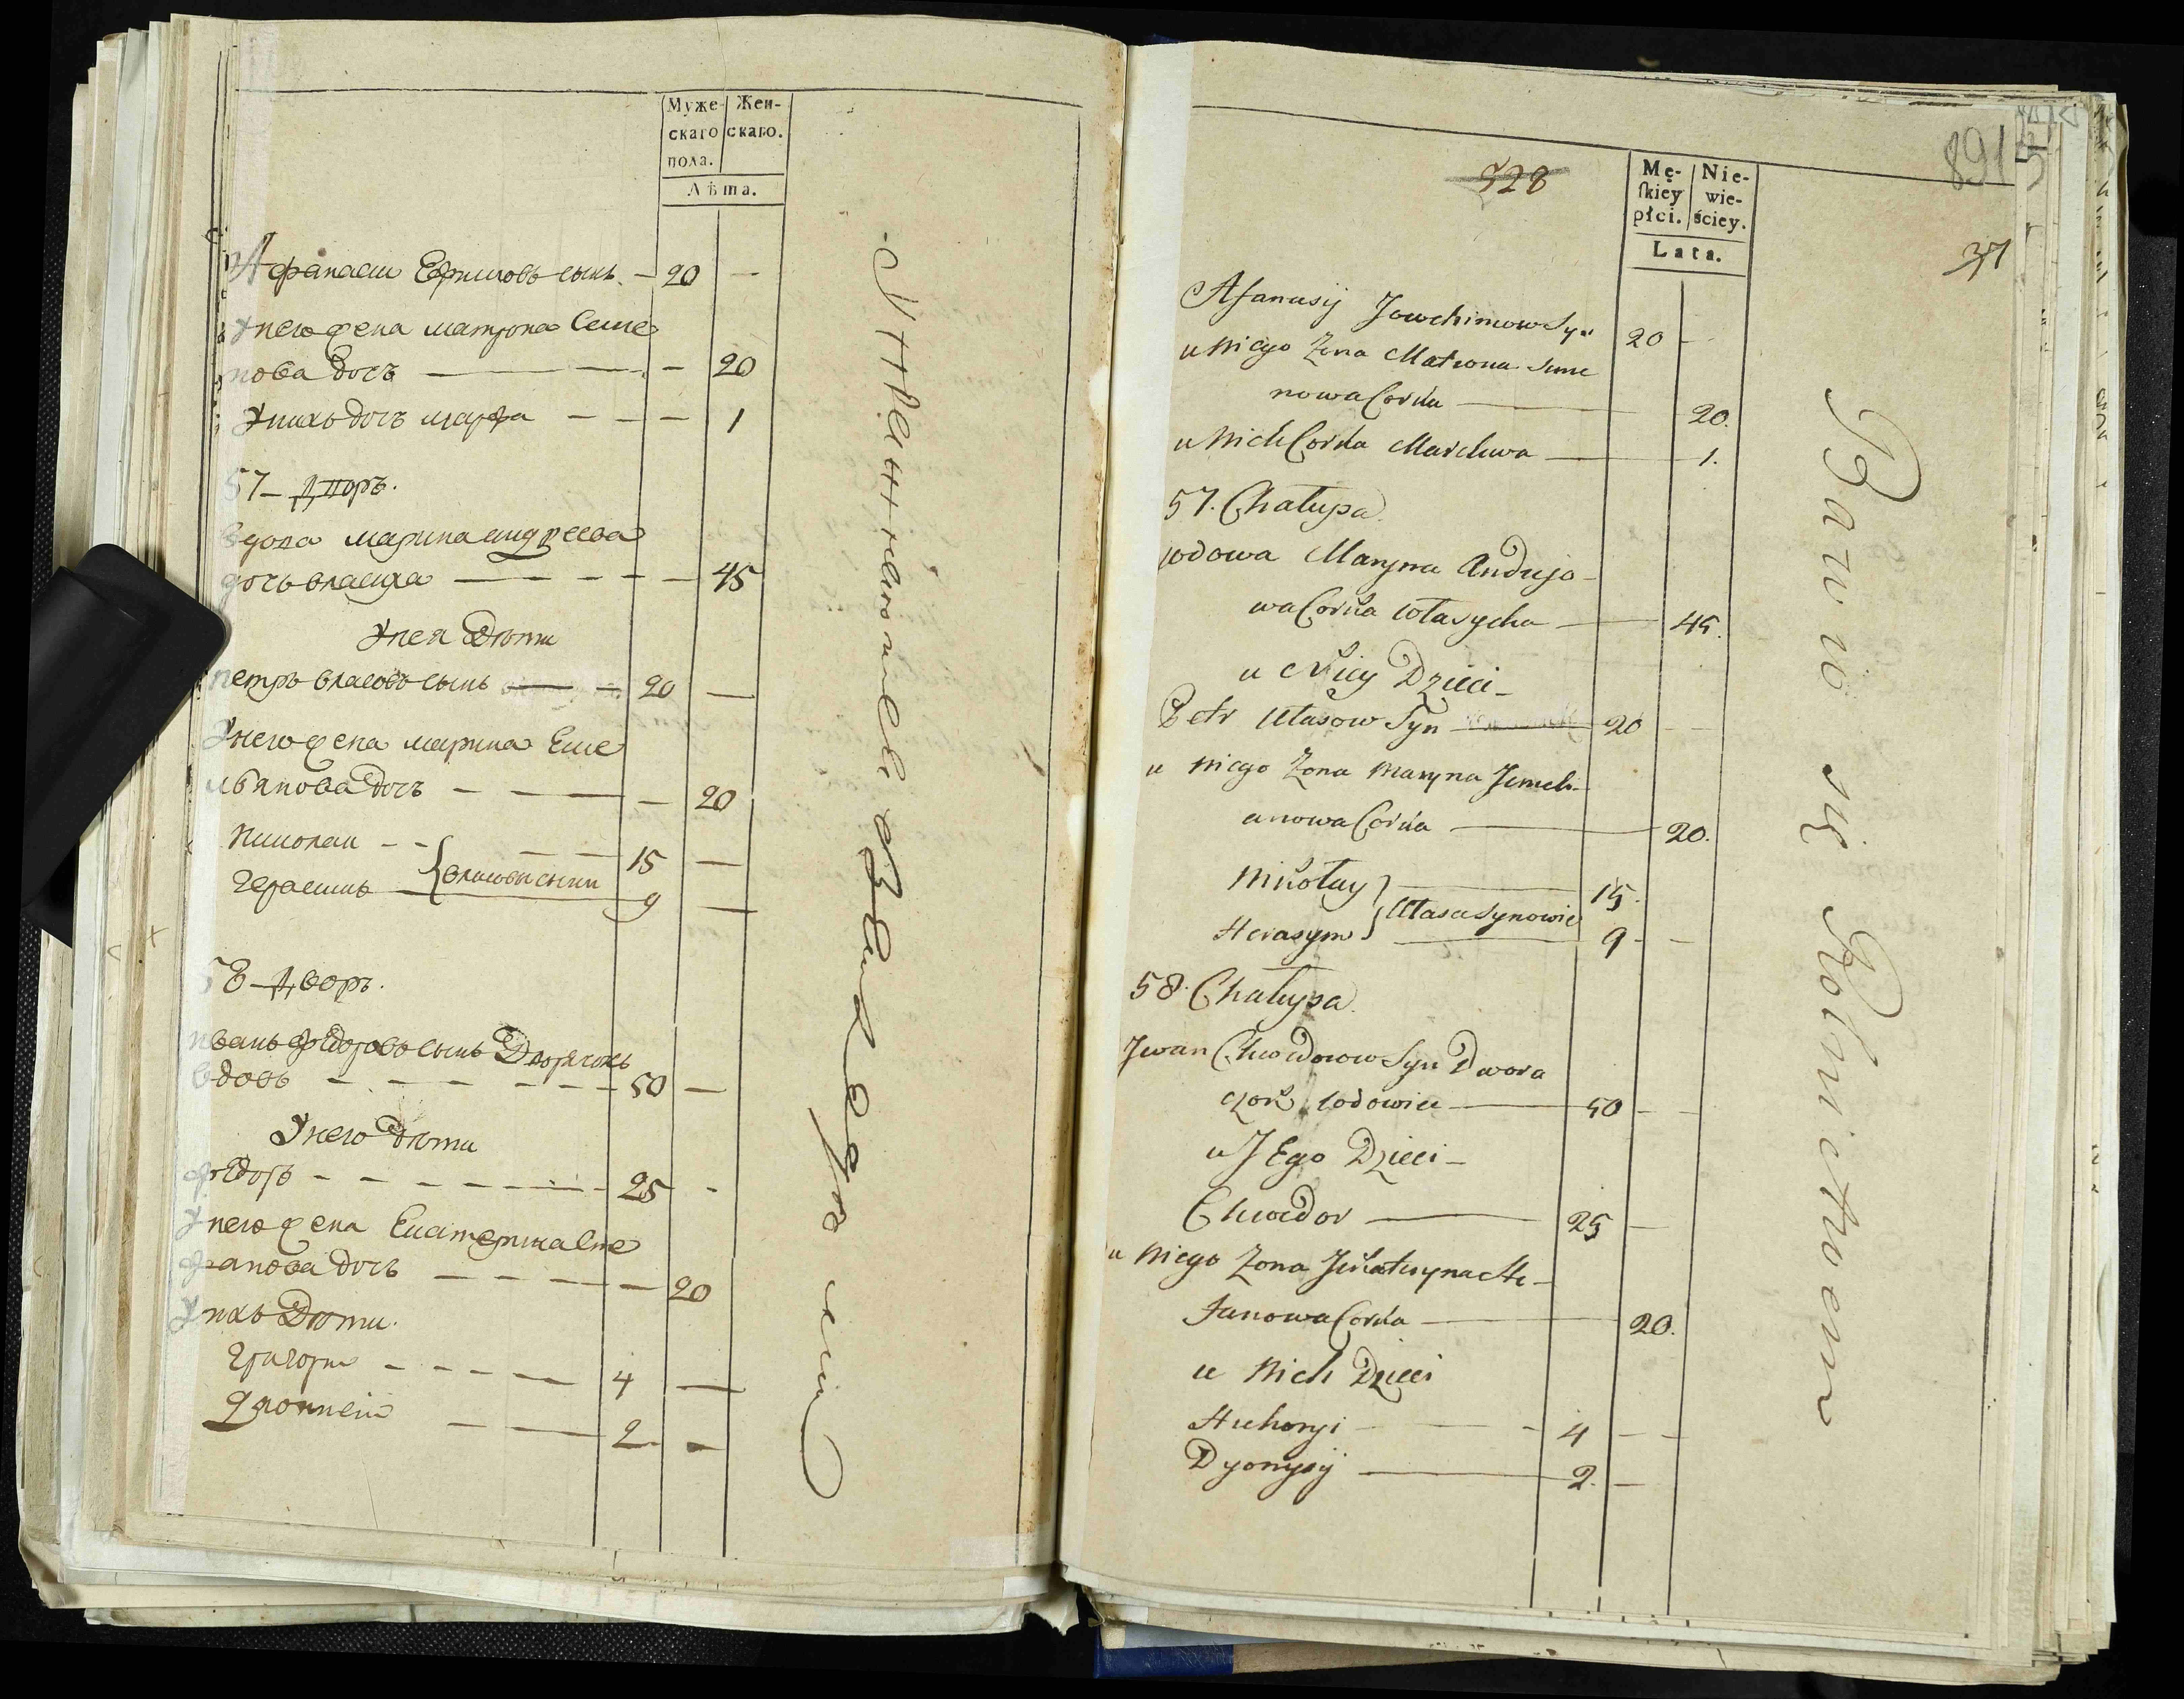 Муже-
скаго
пола.
Жен-
скаго.
Лѣта.
Афанасии Ефимовъ сынъ 20 —
Унего жена матрона Семе
нова дочь — 20
Унихъ дочь марфа — 1
57 — Дворъ.
вдова марина андреева
дочь власиха — 45
Унея Дѣти
петръ власовъ сынъ — 20 —
Унего жена марина Еме
льянова дочь — 20
николаи — 15 —
герасимъ } власовы сыны 9 —
58 — Дворъ.
иванъ федоровъ сынъ Дворачокъ
вдовъ — 50 —
Унего Дѣти
федоръ — 25 -
Унего жена Екатерина Сте
фанова дочь — 20
Унихъ Дѣти.
григори — 4 —
2 -
528
8915
37
Mę-
skiey
płci.
Nie-
wie-
ściey.
Lata.
Afanasij Jowchimow Syn 20 -
u niego Zona Matrona Seme
nowa Corka — 20.
u Nich Corka Marchwa — 1.
57. Chałupa.
wdowa Maryna Andrejo-
wa Corka Własycha — 45.
u Niey Dzieci —
Petr Własow Syn — 20 —
u niego Zona Maryna Jemeli-
anowa Corka — 20.
Mikołay — 15.
Herasym } Własa Synowie 9 - -
58. Chałupa.
Jwan Chwedorow Syn Dwora
czok wdowiec — 50 - -
u JEgo Dzieci —
Chwedor — 25 —
u niego Zona Jekateryna Ste-
fanowa Corka — 20.
u Nich Dzieci
Hrehoryi — 4 - -
Dyonysij — 2. —
Bawią się Rolnictwem